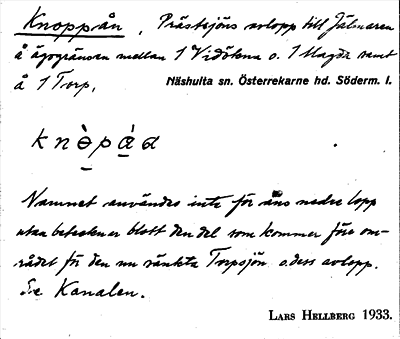 Knoppån, Prästsjöns avlopp till Jälmaren
å ägogränsen mellan 1 Vidökna o. 1 Magda samt
å 1 Torp,
Näshulta sn. Österrekarne hd. Söderm. l.
knɵ̀pá̱d
Namnet användes inte för åns nedre lopp
utan betecknar blott den del som kommer före om-
rådet för den nu sänkta Torpsjön o. dess avlopp.
Se Kanalen.
LARS HELLBERG 1933.